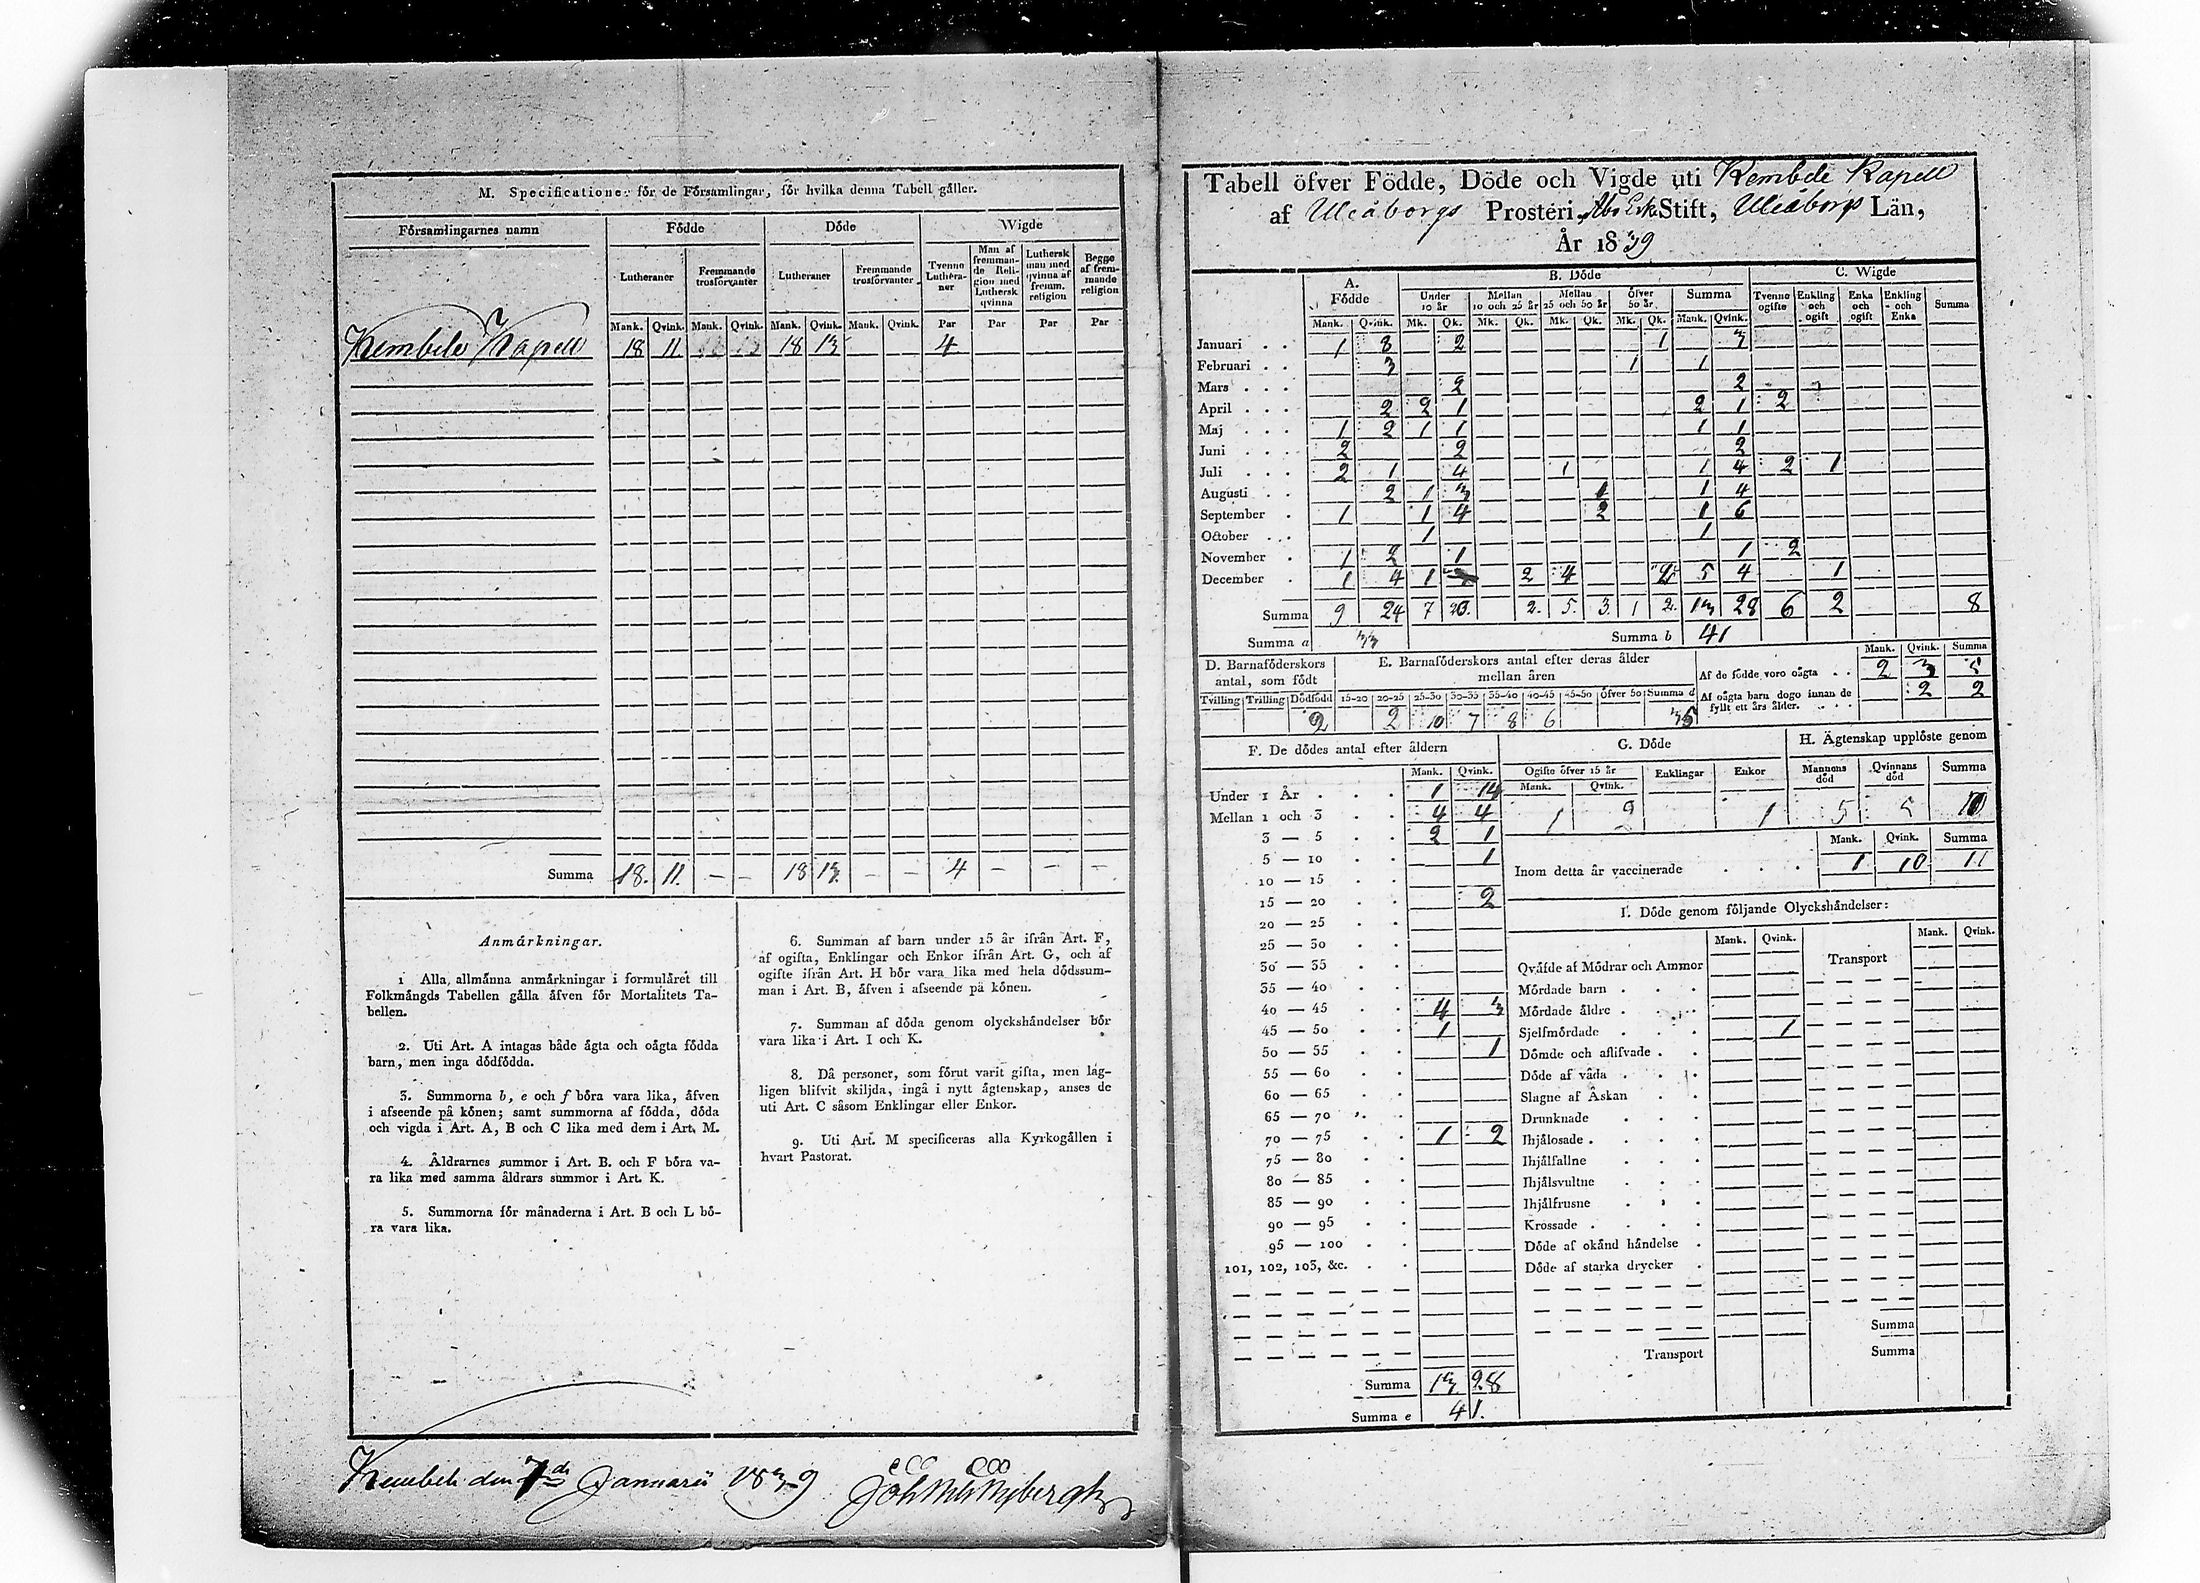 M. Specificationer för de Församlingar, för hvilka denna Tabell gäller.
Församlingarnes namn
Födde
Döde
Wigde
Lutheraner
Fremmande trosförvanter
Lutheraner
Fremmande trosförvanter
Tvenne Lutheraner
Man af fremmande Religion med Luthersk qvinna
Luthersk man med qvinna af fremm. religion
Begge af fremmande religion
Mank. Qvink. Mank. Qvink. Mank. Qvink. Mank. Qvink. Par Par Par Par
Kembele Kapell 18 11 18 13 4
Summa 18. 11. — — 18 13. — — 4 — — —
Anmärkningar.
1 Alla, allmänna anmärkningar i formuläret till
Folkmängds Tabellen gälla äfven för Mortalitets Ta-
bellen.
2. Uti Art. A intagas både ägta och oägta födda
barn, men inga dödfödda.
3. Summorna b, e och f böra vara lika, äfven
i afseende på könen; samt summorna af födda, döda
och vigda i Art. A, B och C lika med dem i Art. M.
4. Äldrarnes summor i Art. B. och F böra va-
ra lika med samma äldrars summor i Art. K.
5. Summorna för månaderna i Art. B och L bö-
ra vara lika.
6. Summan af barn under 15 år ifrån Art. F,
af ogifta, Enklingar och Enkor ifrån Art. G, och af
ogifte ifrån Art. H bör vara lika med hela dödssum-
man i Art. B, äfven i afseende på könen.
7. Summan af döda genom olyckshändelser bör
vara lika i Art. I och K.
8. Då personer, som förut varit gifta, men lag-
ligen blifvit skiljda, ingå i nytt ägtenskap, anses de
uti Art. C såsom Enklingar eller Enkor.
9. Uti Art. M specificeras alla Kyrkogällen i
hvart Pastorat.
Kembele den 7de Januarii 1839
Tabell öfver Födde, Döde och Vigde uti Kembele Kapell
af Uleåborgs Prosteri, Åbo Erke Stift, Uleåborgs Län,
År 1839
A. Födde
B. Döde
C. Wigde
Under 10 år
Mellan 10 och 25 år
Mellan 25 och 50 år
Öfver 50 år
Summa
Tvenne ogifte
Enkling och ogift
Enka och ogift
Enkling och Enka
Summa
Mank. Qvink. Mk. Qk. Mk. Qk. Mk. Qk. Mk. Qk. Mank. Qvink.
Januari . . 1 8 2 1 3
Februari . . 3 1 1
Mars . . . 2 2
April . . . 2 2 1 2 1 2
Maj . . . 1 2 1 1 1 1
Juni . . . 2 2 2
Juli . . . 2 1 4 1 1 4 2 1
Augusti . . 2 1 3 1 1 4
September . 1 1 4 2 1 6
October . . 1 1
November . 1 2 1 1 2
December . 1 4 1 2 4 5 4 1
Summa 9 24 7 23. 2. 5. 3 1 2. 13 28 6 2 8
Summa a 33
Summa b 41
D. Barnaföderskors antal, som födt
Tvilling Trilling Dödfödd
2
E. Barnaföderskors antal efter deras ålder mellan åren
15-20 20-25 25-30 30-35 35-40 40-45 45-50 öfver 50 Summa d
2 10 7 8 6 35
Mank. Qvink. Summa
Af de födde voro oägta . . 2 3 5
Af oägta barn dogo innan de
fyllt ett års ålder. . . . 2 2
F. De dödes antal efter åldern
Mank. Qvink.
Under 1 År . . . 1 14
Mellan 1 och 3 . . 4 4
3 — 5 . . 2 1
5 — 10 . . 1
10 — 15 . .
15 — 20 . . 2
20 — 25 . .
25 — 30 . .
30 — 35 . .
35 — 40 . .
40 — 45 . . 4 3
45 — 50 . . 1
50 — 55 . . 1
55 — 60 . .
60 — 65 . .
65 — 70 . .
70 — 75 . . 1 2
75 — 80 . .
80 — 85 . .
85 — 90 . .
90 — 95 . .
95 — 100 . .
101, 102, 103, &c. . .
Summa 13 28
Summa e 41.
G. Döde
Ogifte öfver 15 år
Mank. Qvink.
Enklingar
Enkor
1 2 1
H. Ägtenskap upplöste genom
Mannens död
Qvinnans död
Summa
5 5 10
Mank. Qvink. Summa
Inom detta år vaccinerade . . . 1 10 11
I. Döde genom följande Olyckshändelser:
Mank. Qvink.
Mank. Qvink.
Qväfde af Mödrar och Ammor
Mördade barn . . .
Mördade äldre . . .
Sjelfmördade . . . 1
Dömde och aflifvade . .
Döde af våda . . .
Slagne af Åskan . .
Drunknade . . .
Ihjälosade . . . .
Ihjälfallne . . .
Ihjälsvultne . . .
Ihjälfrusne . . .
Krossade . . . .
Döde af okänd händelse .
Döde af starka drycker .
Transport
Transport
Summa
Summa